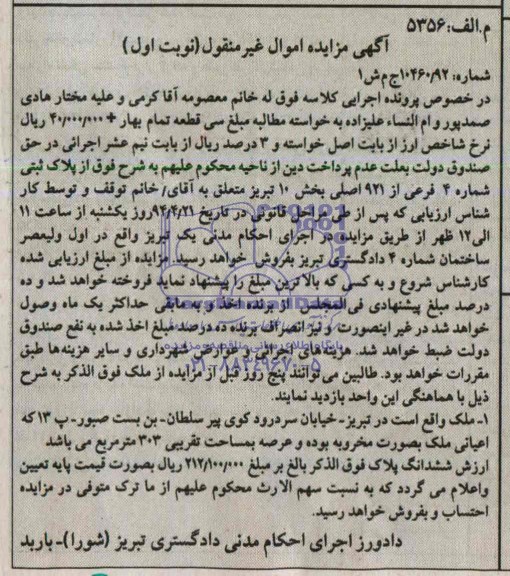 م.الف:۵۳۵۶
آگهی مزایده اموال غیرمنقول(نوبت اول)
شماره: ۱۰۴۶۰/۹۲ج‌م‌ش۱
در خصوص پرونده اجرایی کلاسه فوق له خانم معصومه آقا کرمی و علیه مختار هادی
صمدپور و ام النساء علیزاده به خواسته مطالبه مبلغ سی قطعه تمام بهار + ۴۰/۰۰۰/۰۰۰ ریال
نرخ شاخص ارز از بابت اصل خواسته و ۳ درصد ریال از بابت نیم عشر اجرائی در حق
صندوق دولت بعلت عدم پرداخت دین از ناحیه محکوم علیهم به شرح فوق از پلاک ثبتی
شماره ۴ فرعی از ۹۲۱ اصلی بخش ۱۰ تبریز متعلق به آقای/ خانم توقف و توسط کار
شناس ارزیابی که پس از طی مراحل قانونی در تاریخ ۹۴/۴/۲۱روز یکشنبه از ساعت ۱۱
الی۱۲ ظهر از طریق مزایده در اجرای احکام مدنی یک تبریز واقع در اول ولیعصر
ساختمان شماره ۴ دادگستری تبریز بفروش خواهد رسید. مزایده از مبلغ ارزیابی شده
کارشناس شروع و به کسی که بالاترین مبلغ را پیشنهاد نماید فروخته خواهد شد و ده
درصد مبلغ پیشنهادی فی المجلس از برنده اخذ و مابقی حداکثر یک ماه وصول
خواهد شد در غیر اینصورت و نیز انصراف برنده ده درصد مبلغ اخذ شده به نفع صندوق
دولت ضبط خواهد شد. هزینه‌های اجرائی و عوارض شهرداری و سایر هزینه‌ها طبق
مقررات خواهد بود. طالبین می‌توانند پنج روز قبل از مزایده از ملک فوق الذکر به شرح
ذیل با هماهنگی این واحد بازدید نمایند.
۱ـ ملک واقع است در تبریز-خیابان سردرود کوی پیر سلطان- بن بست صبور-پ ۱۳ که
اعیانی ملک بصورت مخروبه بوده و عرصه بمساحت تقریبی ۳۰۳ مترمربع می باشد
ارزش ششدانگ پلاک فوق الذکر بالغ بر مبلغ ۲۱۲/۱۰۰/۰۰۰ ریال بصورت قیمت پایه تعیین
واعلام می گردد که به نسبت سهم الارث محکوم علیهم از ما ترک متوفی در مزایده
احتساب و بفروش خواهد رسید.
دادورز اجرای احکام مدنی دادگستری تبریز (شورا)- باربد